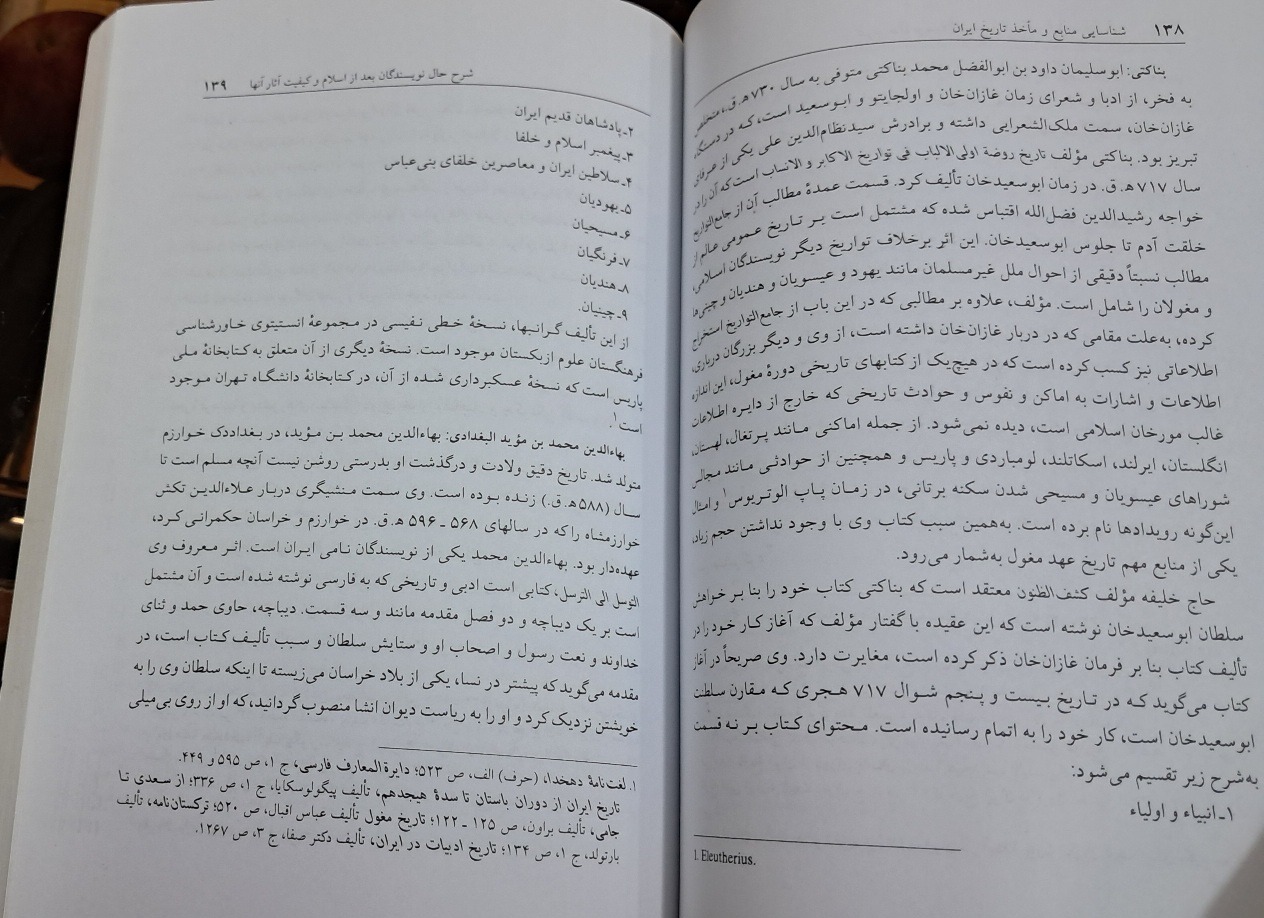 ۱۳۸ شناسایی منابع و مآخذ تاریخ ایران
بناکتی: ابوسلیمان داود بن ابوالفضل محمد بناکتی متوفی به سال ۷۳۰ ه‍.ق.، متخلص
به فخر، از ادبا و شعرای زمان غازان‌خان و اولجایتو و ابوسعید است، که در دستگاه
غازان‌خان، سمت ملک‌الشعرایی داشته و برادرش سیدنظام‌الدین علی یکی از عرفای
تبریز بود. بناکتی مؤلف تاریخ روضة اولی‌الالباب فی تواریخ الاکابر و الانساب است که آن را در
سال ۷۱۷ ه‍.ق. در زمان ابوسعیدخان تألیف کرد. قسمت عمدهٔ مطالب آن از جامع‌التواریخ
خواجه رشیدالدین فضل‌الله اقتباس شده که مشتمل است بر تاریخ عمومی عالم از
خلقت آدم تا جلوس ابوسعیدخان. این اثر برخلاف تواریخ دیگر نویسندگان اسلامی،
مطالب نسبتاً دقیقی از احوال ملل غیرمسلمان مانند یهود و عیسویان و هندیان و چینی‌ها
و مغولان را شامل است. مؤلف، علاوه بر مطالبی که در این باب از جامع‌التواریخ استخراج
کرده، به‌علت مقامی که در دربار غازان‌خان داشته است، از وی و دیگر بزرگان درباری،
اطلاعاتی نیز کسب کرده است که در هیچ‌یک از کتابهای تاریخی دورهٔ مغول، این اندازه
اطلاعات و اشارات به اماکن و نفوس و حوادث تاریخی که خارج از دایره اطلاعات
غالب مورخان اسلامی است، دیده نمی‌شود. از جمله اماکنی مانند پرتغال، لهستان،
انگلستان، ایرلند، اسکاتلند، لومباردی و پاریس و همچنین از حوادثی مانند مجالس
شوراهای عیسویان و مسیحی شدن سکنه برتانی، در زمان پاپ الوتریوس۱ و امثال
این‌گونه رویدادها نام برده است. به‌همین سبب کتاب وی با وجود نداشتن حجم زیاد،
یکی از منابع مهم تاریخ عهد مغول به‌شمار می‌رود.
حاج خلیفه مؤلف کشف‌الظنون معتقد است که بناکتی کتاب خود را بنا بر خواهش
سلطان ابوسعیدخان نوشته است که این عقیده با گفتار مؤلف که آغاز کار خود را در
تألیف کتاب بنا بر فرمان غازان‌خان ذکر کرده است، مغایرت دارد. وی صریحاً در آغاز
کتاب می‌گوید که در تاریخ بیست و پنجم شوال ۷۱۷ هجری که مقارن سلطنت
ابوسعیدخان است، کار خود را به اتمام رسانیده است. محتوای کتاب بر نه قسمت
به‌شرح زیر تقسیم می‌شود:
۱ـ انبیاء و اولیاء
1. Eleutherius.
شرح حال نویسندگان بعد از اسلام و کیفیت آثار آنها ۱۳۹
۲ـ پادشاهان قدیم ایران
۳ـ پیغمبر اسلام و خلفا
۴ـ سلاطین ایران و معاصرین خلفای بنی‌عباس
۵ـ یهودیان
۶ـ مسیحیان
۷ـ فرنگیان
۸ـ هندیان
۹ـ چینیان.
از این تألیف گرانبها، نسخهٔ خطی نفیسی در مجموعهٔ انستیتوی خاورشناسی
فرهنگستان علوم ازبکستان موجود است. نسخهٔ دیگری از آن متعلق به کتابخانهٔ ملی
پاریس است که نسخهٔ عسکبرداری شده از آن، در کتابخانهٔ دانشگاه تهران موجود
است۱.
بهاءالدین محمد بن مؤید البغدادی: بهاءالدین محمد بن مؤید، در بغدادک خوارزم
متولد شد. تاریخ دقیق ولادت و درگذشت او بدرستی روشن نیست آنچه مسلم است تا
سال (۵۸۸ ه‍.ق.) زنده بوده است. وی سمت منشیگری دربار علاءالدین تکش
خوارزمشاه را که در سالهای ۵۶۸ ـ ۵۹۶ ه‍.ق. در خوارزم و خراسان حکمرانی کرد،
عهده‌دار بود. بهاءالدین محمد یکی از نویسندگان نامی ایران است. اثر معروف وی
التوسل الی الترسل، کتابی است ادبی و تاریخی که به فارسی نوشته شده است و آن مشتمل
است بر یک دیباچه و دو فصل مقدمه مانند و سه قسمت. دیباچه، حاوی حمد و ثنای
خداوند و نعت رسول و اصحاب او و ستایش سلطان و سبب تألیف کتاب است، در
مقدمه می‌گوید که پیشتر در نسا، یکی از بلاد خراسان می‌زیسته تا اینکه سلطان وی را به
خویشتن نزدیک کرد و او را به ریاست دیوان انشا منصوب گردانید، که او از روی بی‌میلی
۱. لغت‌نامهٔ دهخدا، (حرف) الف، ص ۵۲۳؛ دایرة المعارف فارسی، ج ۱، ص ۵۹۵ و ۴۴۹.
تاریخ ایران از دوران باستان تا سدهٔ هیجدهم، تألیف پیگولوسکایا، ج ۱، ص ۳۳۶؛ از سعدی تا
جامی، تألیف براون، ص ۱۲۵ ـ ۱۲۲؛ تاریخ مغول تألیف عباس اقبال، ص ۵۲۰؛ ترکستان‌نامه، تألیف
بارتولد، ج ۱، ص ۱۳۴؛ تاریخ ادبیات در ایران، تألیف دکتر صفا، ج ۳، ص ۱۲۶۷.